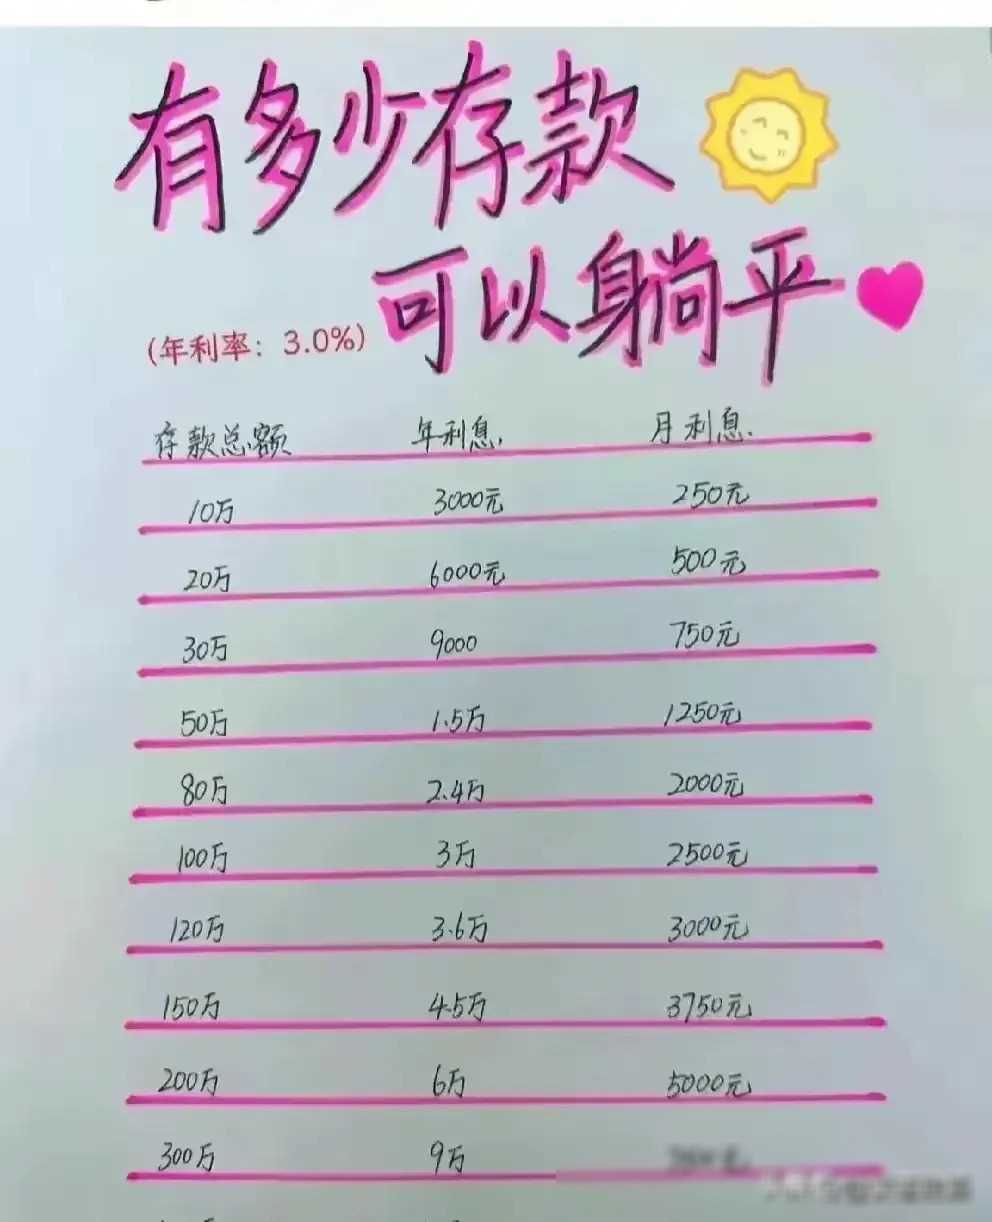 有多少存款
可以躺平
(年利率: 3.0%)
存款总额 年利息 月利息
10万 3000元 250元
20万 6000元 500元
30万 9000 750元
50万 1.5万 1250元
80万 2.4万 2000元
100万 3万 2500元
120万 3.6万 3000元
150万 4.5万 3750元
200万 6万 5000元
300万 9万